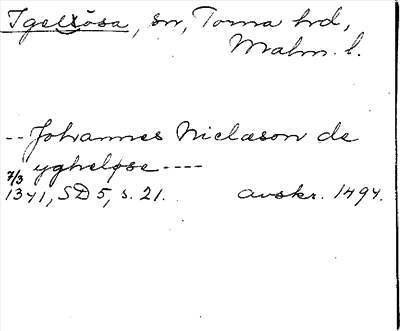 Igelösa, sn, Torna hd,
Malm. l.
-- Johannes Niclæson de
ygheløse ----
7/3
1341, SD 5, s. 21. avskr. 1494.